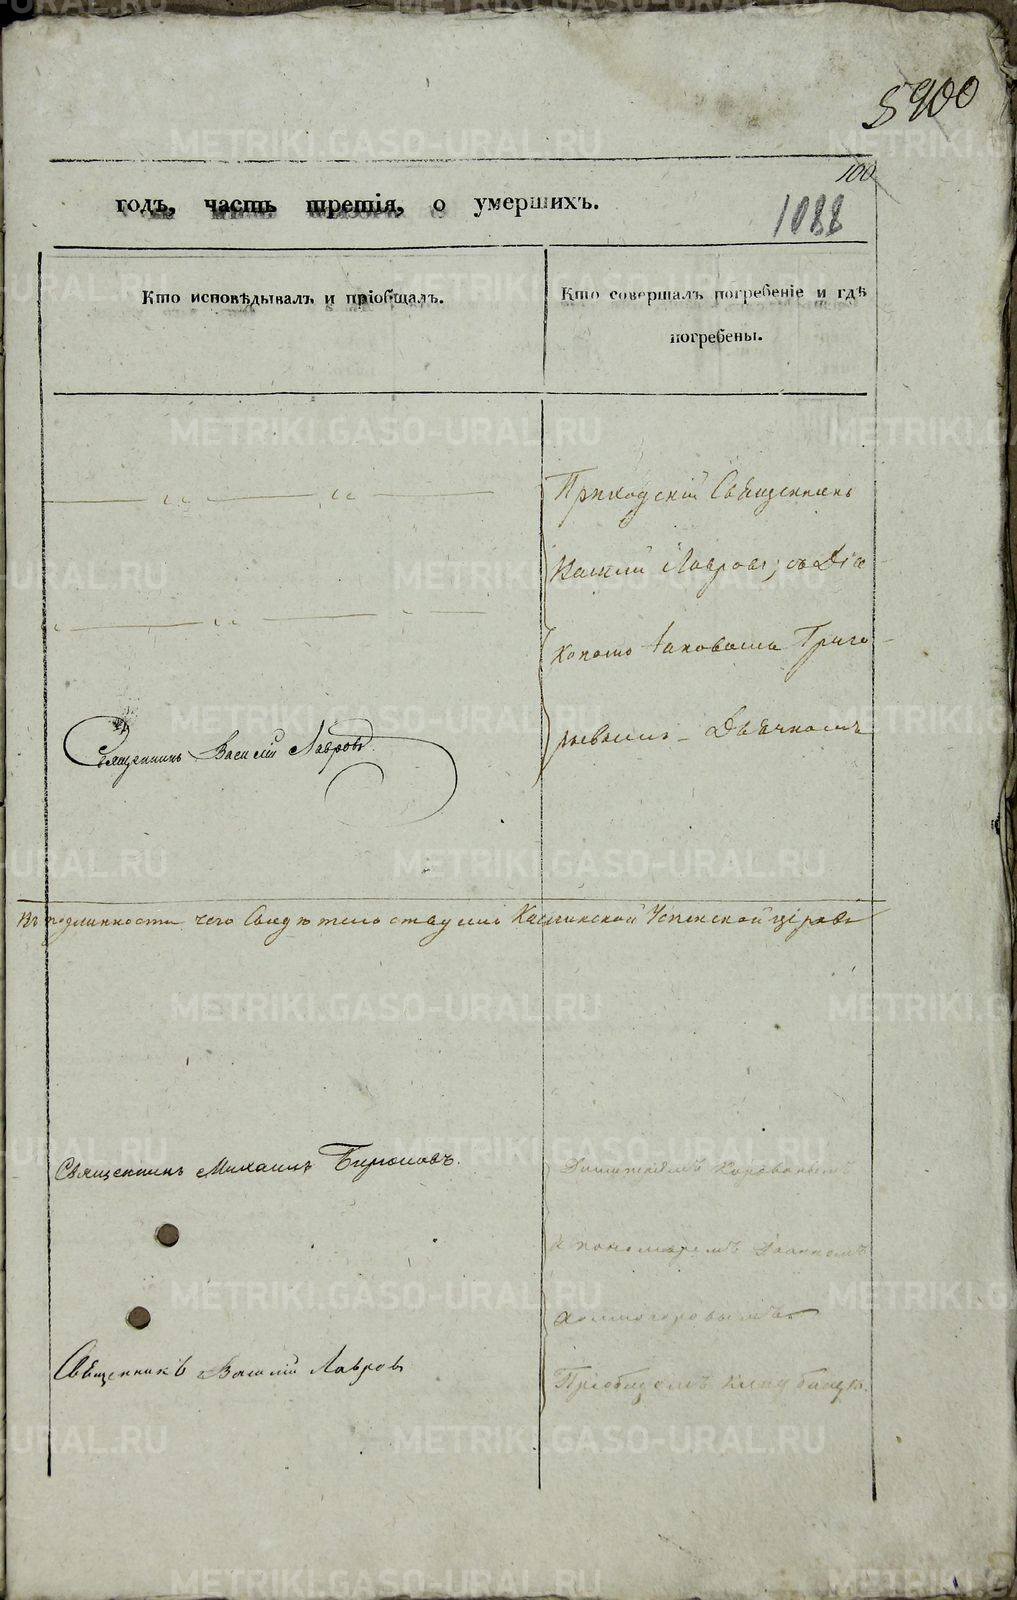 5900
100
годъ, часть третія, о умершихъ.
1088
Кто исповѣдывалъ и пріобщалъ.
Кто совершалъ погребеніе и гдѣ
погребены.
Приходскій Священникъ
Василій Лавровъ, съ Діа
кономъ Іаковомъ Григо
рьевымъ Дьячкомъ
Священникъ Василій Лавровъ
Въ подлинности чего Свидѣтельствуемъ Каслинской Успенской церкви
Священникъ Михаилъ Бирюковъ.
Димитріемъ
и пономаремъ Іоанномъ
Холмогоровымъ
Священникъ Василій Лавровъ
Приходскомъ кладбищѣ.
METRIKI.GASO-URAL.RU